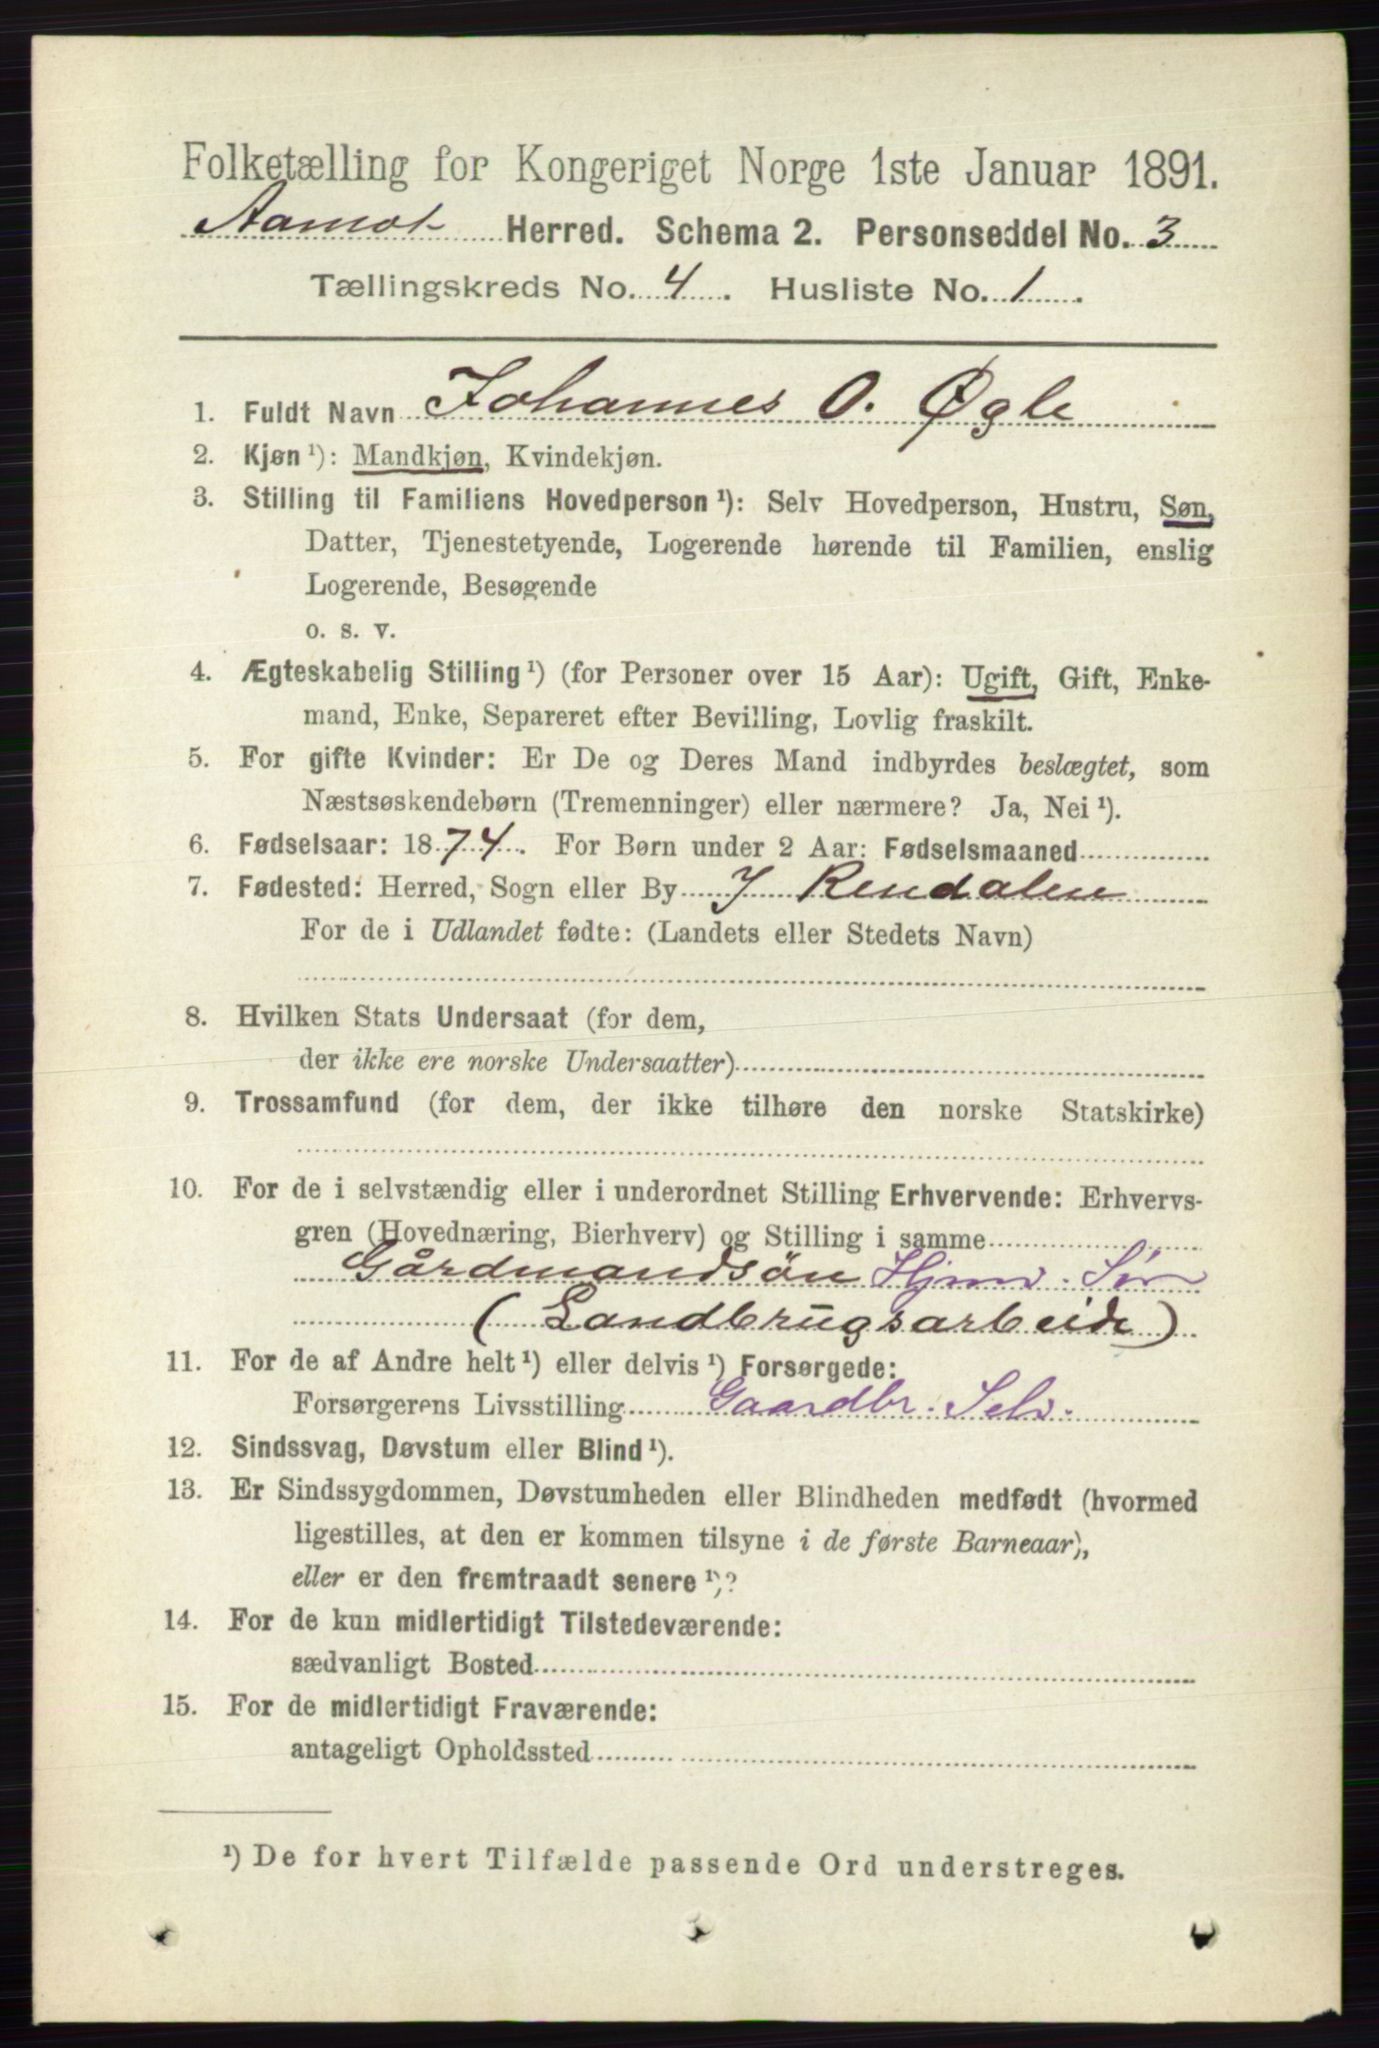 Folketælling for Kongeriget Norge 1ste Januar 1891.
Aamot Herred. Schema 2. Personseddel No. 3
Tællingskreds No. 4. Husliste No. 1.
1. Fuldt Navn Johannes O. Øgle
2. Kjøn ¹): Mandkjøn, Kvindekjøn.
3. Stilling til Familiens Hovedperson ¹): Selv Hovedperson, Hustru, Søn,
Datter, Tjenestetyende, Logerende hørende til Familien, enslig
Logerende, Besøgende
o. s. v.
4. Ægteskabelig Stilling ¹) (for Personer over 15 Aar): Ugift, Gift, Enke-
mand, Enke, Separeret efter Bevilling, Lovlig fraskilt.
5. For gifte Kvinder: Er De og Deres Mand indbyrdes beslægtet, som
Næstsøskendebørn (Tremenninger) eller nærmere? Ja, Nei ¹).
6. Fødselsaar: 1874. For Børn under 2 Aar: Fødselsmaaned
7. Fødested: Herred, Sogn eller By I Rendalen
For de i Udlandet fødte: (Landets eller Stedets Navn)
8. Hvilken Stats Undersaat (for dem,
der ikke ere norske Undersaatter)
9. Trossamfund (for dem, der ikke tilhøre den norske Statskirke)
10. For de i selvstændig eller i underordnet Stilling Erhvervende: Erhvervs-
gren (Hovednæring, Bierhverv) og Stilling i samme
Gårdmandsön Hjmv. Sön
(Landbrugsarbeide)
11. For de af Andre helt ¹) eller delvis ¹) Forsørgede:
Forsørgerens Livsstilling Gaardbr. Selv.
12. Sindssvag, Døvstum eller Blind ¹).
13. Er Sindssygdommen, Døvstumheden eller Blindheden medfødt (hvormed
ligestilles, at den er kommen tilsyne i de første Barneaar),
eller er den fremtraadt senere ¹)?
14. For de kun midlertidigt Tilstedeværende:
sædvanligt Bosted
15. For de midlertidigt Fraværende:
antageligt Opholdssted
¹) De for hvert Tilfælde passende Ord understreges.